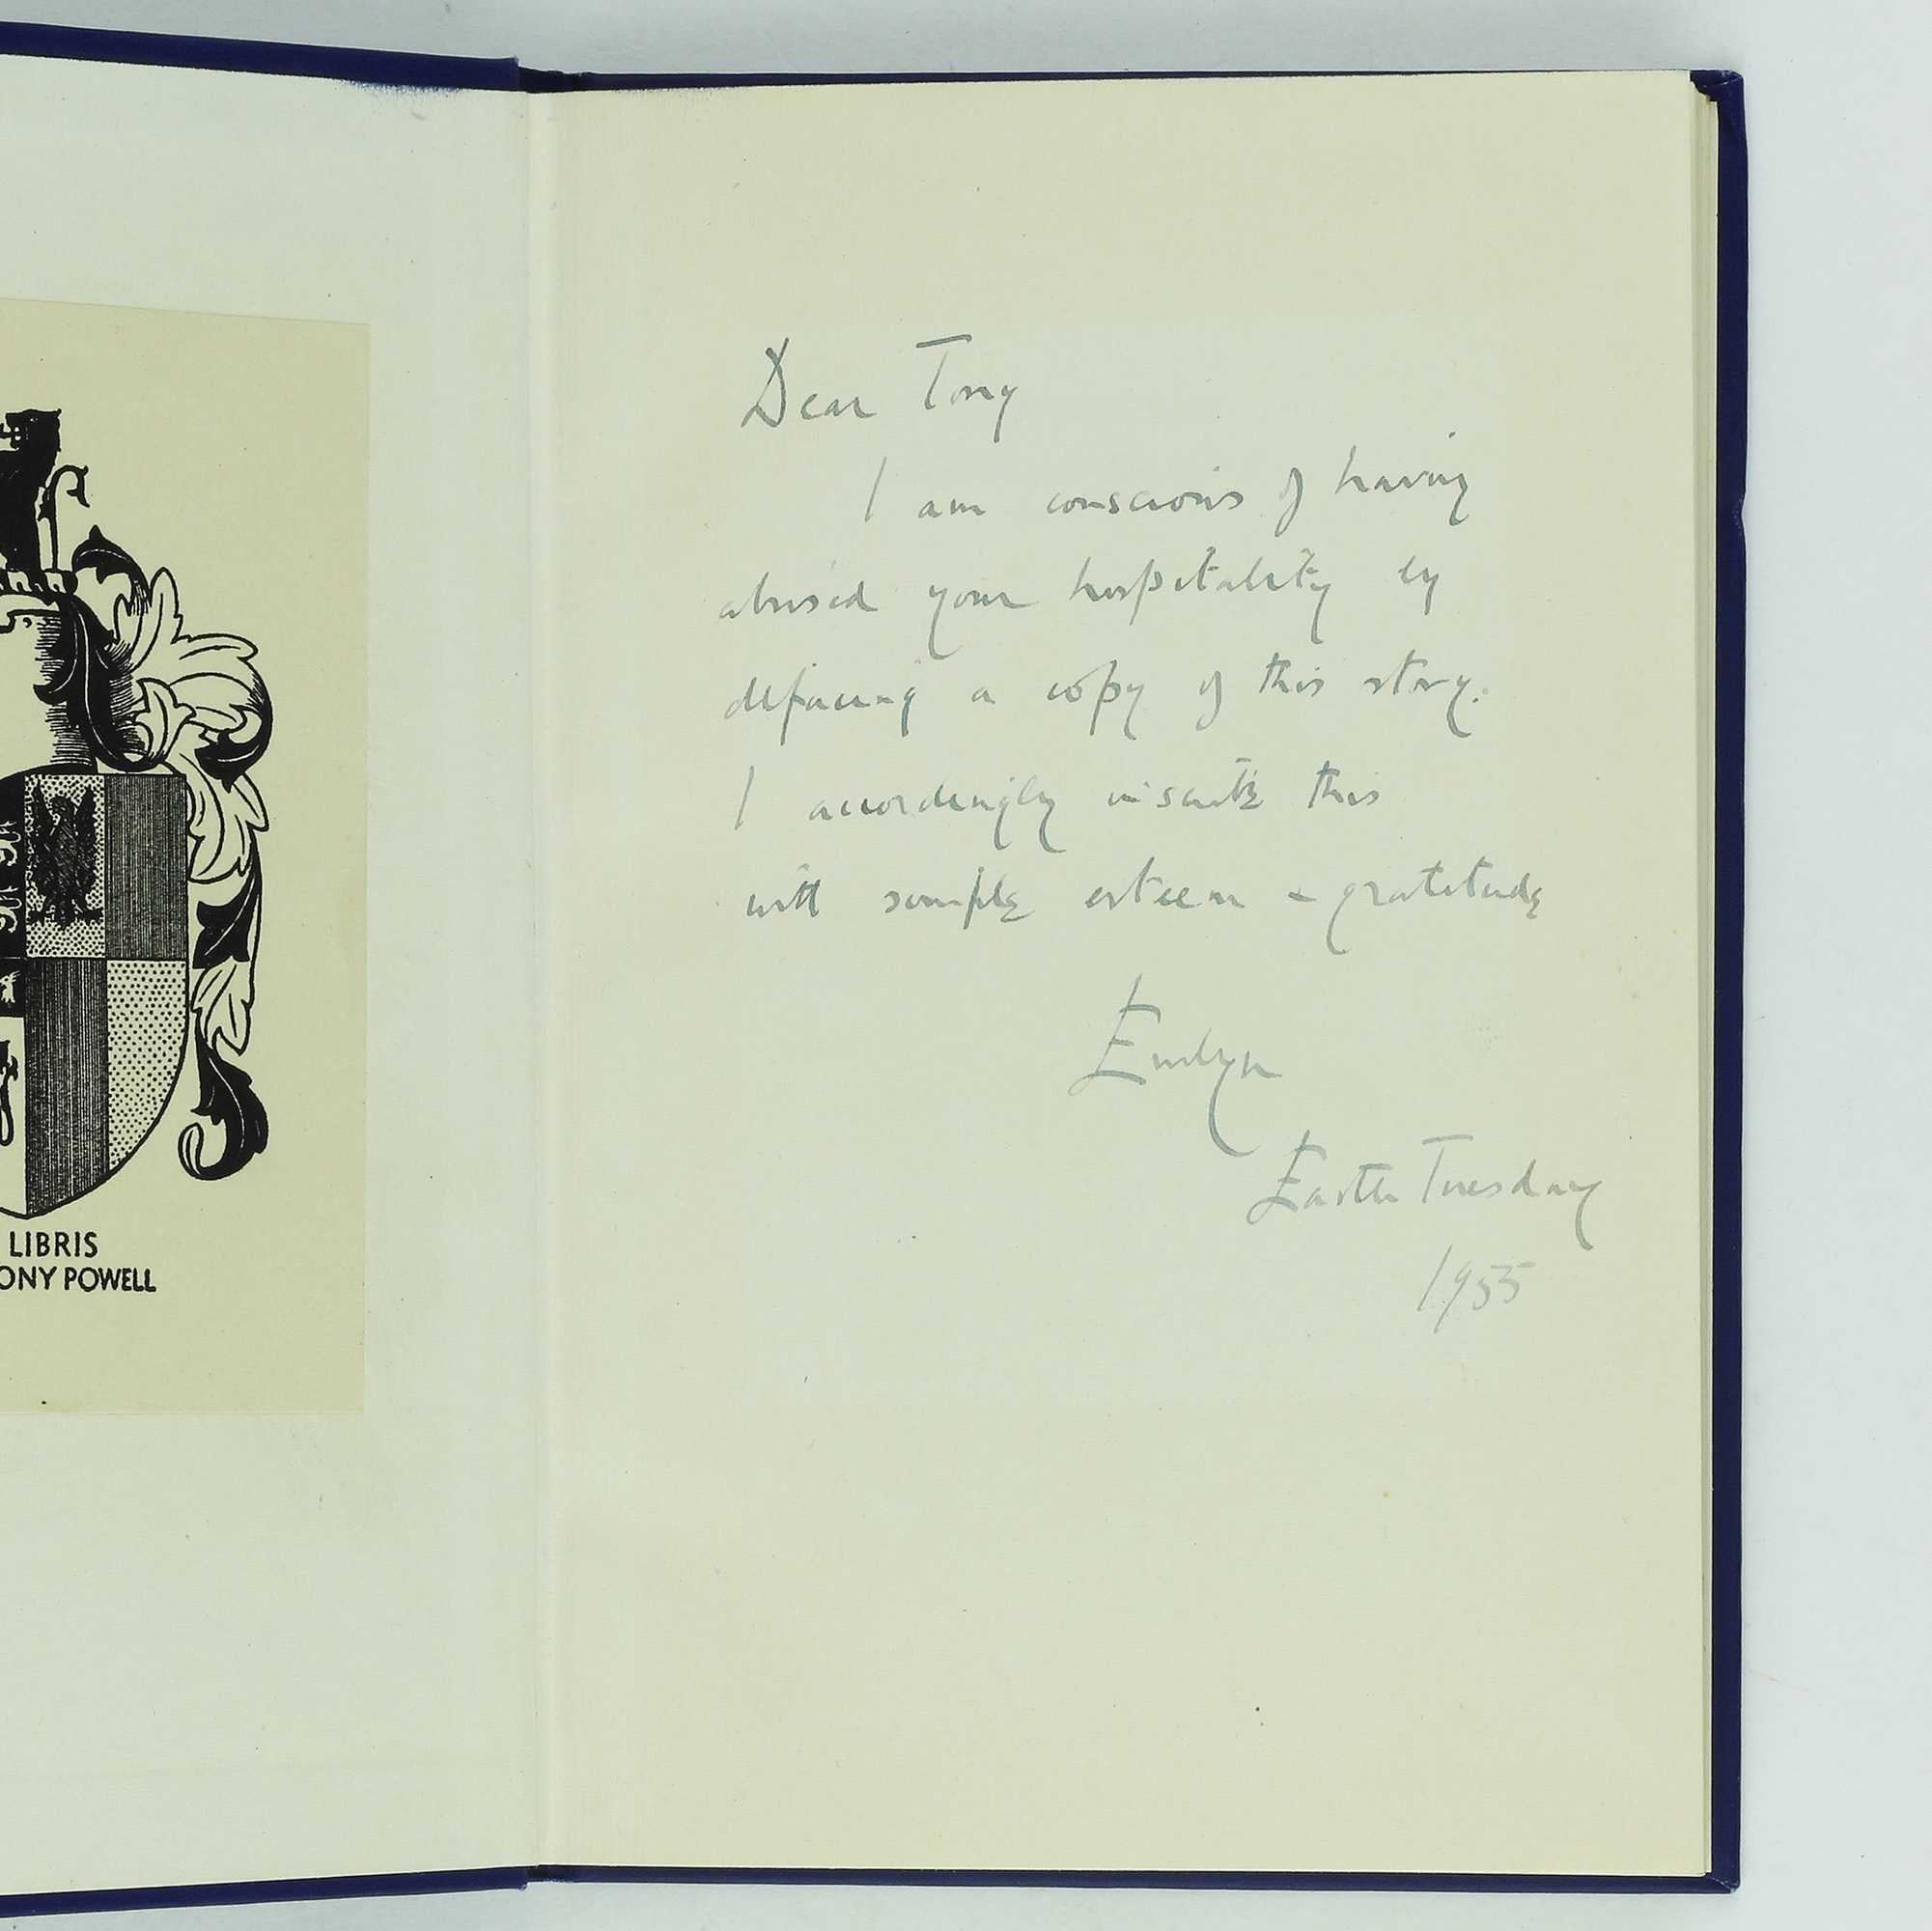 LIBRIS
ONY POWELL
Dear Tony
I am conscious of having
abused your hospitality by
defacing a copy of this story.
I accordingly inscribe this
with simple esteem & gratitude
Evelyn
Easter Tuesday
1955